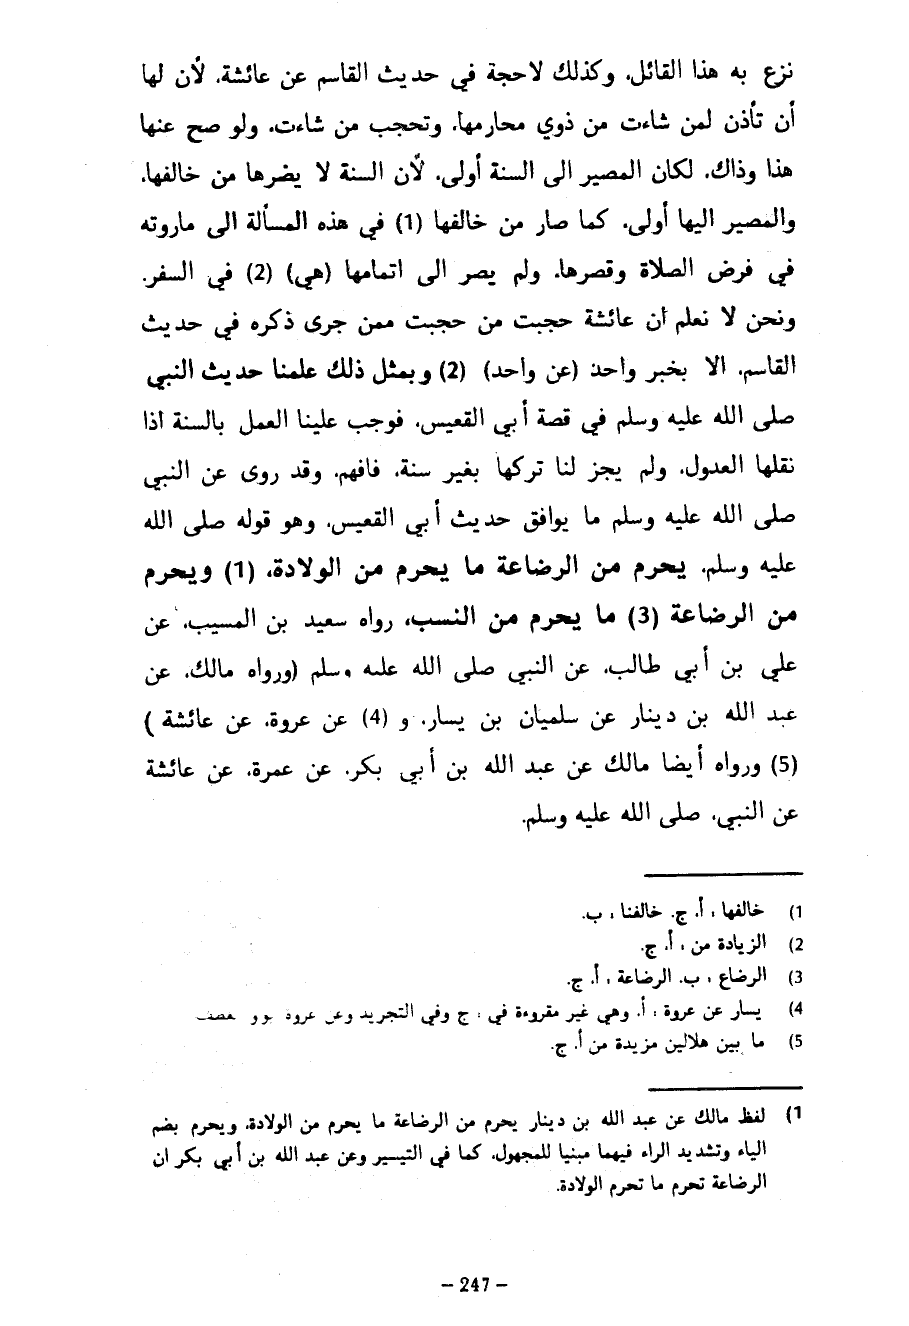 نزع به هذا القائل، وكذلك لاحجة في حديث القاسم عن عائشة، لأن لها
أن تأذن لمن شاءت من ذوي محارمها، وتحجب من شاءت، ولو صح عنها
هذا وذاك، لكان المصير الى السنة أولى، لأن السنة لا يضرها من خالفها،
والمصير اليها أولى، كما صار من خالفها (1) في هذه المسألة الى ماروته
في فرض الصلاة وقصرها، ولم يصر الى اتمامها (هي) (2) في السفر.
ونحن لا نعلم أن عائشة حجبت من حجبت ممن جرى ذكره في حديث
القاسم، الا بخبر واحد (عن واحد) (2) وبمثل ذلك علمنا حديث النبي
صلى الله عليه وسلم في قصة أبي القعيس، فوجب علينا العمل بالسنة اذا
نقلها العدول، ولم يجز لنا تركها بغير سنة، فافهم، وقد روى عن النبي
صلى الله عليه وسلم ما يوافق حديث أبي القعيس، وهو قوله صلى الله
عليه وسلم، يحرم من الرضاعة ما يحرم من الولادة، (1) ويحرم
من الرضاعة (3) ما يحرم من النسب، رواه سعيد بن المسيب، عن
علي بن أبي طالب، عن النبي صلى الله عليه وسلم (ورواه مالك، عن
عبد الله بن دينار عن سلميان بن يسار، و (4) عن عروة، عن عائشة )
(5) ورواه أيضا مالك عن عبد الله بن أبي بكر، عن عمرة، عن عائشة
عن النبي، صلى الله عليه وسلم.
1) خالفها ، أ. ج. خالفنا ، ب.
2) الزيادة من ، أ. ج.
3) الرضاع ، ب. الرضاعة ، أ. ج.
4) يسار عن عروة ، أ. وهي غير مقروءة في ، ج وفي التجريد وعن عروة
5) ما بين هلالين مزيدة من أ. ج.
1) لفظ مالك عن عبد الله بن دينار يحرم من الرضاعة ما يحرم من الولادة، ويحرم بضم
الياء وتشديد الراء فيهما مبنيا للمجهول، كما في التيسير وعن عبد الله بن أبي بكر ان
الرضاعة تحرم ما تحرم الولادة.
– 247 –